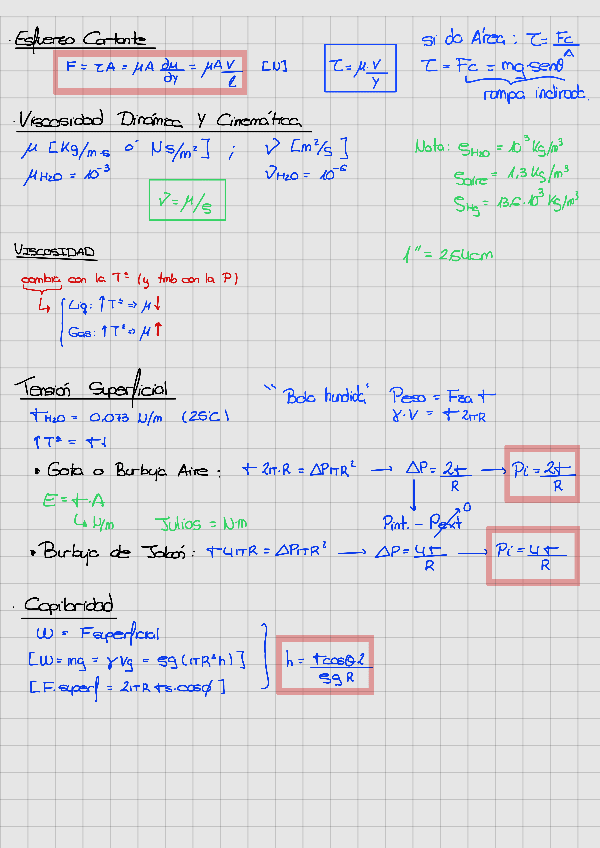 · Esfuerzo Cortante
F = τA = μA ∂u/∂y = μA V/l [N]
τ = μ·V/y
si da Área: τ = Fc/A
τ = Fc = mg·senθ
rampa inclinada
· Viscosidad Dinámica y Cinemática
μ [Kg/m·s ó N·s/m²] ; ν [m²/s]
μH2O = 10⁻³ νH2O = 10⁻⁶
ν = μ/ρ
Nota: ρH2O = 10³ Kg/m³
ρaire = 1,3 Kg/m³
ρHg = 13,6·10³ Kg/m³
1" = 2,54cm
VISCOSIDAD
cambia con la Tª (y tmb con la P)
↳ Liq: ↑Tª ⇒ μ↓
Gas: ↑Tª ⇒ μ↑
Tensión Superficial
σH2O = 0,073 N/m (25C)
↑Tª = σ↓
"Bola hundida" Peso = Fza σ
γ·V = σ 2πR
• Gota o Burbuja Aire: σ 2π·R = ΔPπR² → ΔP = 2σ/R → Pi = 2σ/R
Pint. - Pext 0
E = σ·A
↳ N/m Julios = N·m
• Burbuja de Jabón: σ4πR = ΔPπR² → ΔP = 4σ/R → Pi = 4σ/R
· Capilaridad
W = Fsuperficial
[W = mg = γVg = ρg(πR²h)]
[F.superf = 2πR σs·cosϕ]
h = σcosθ2/ρgR